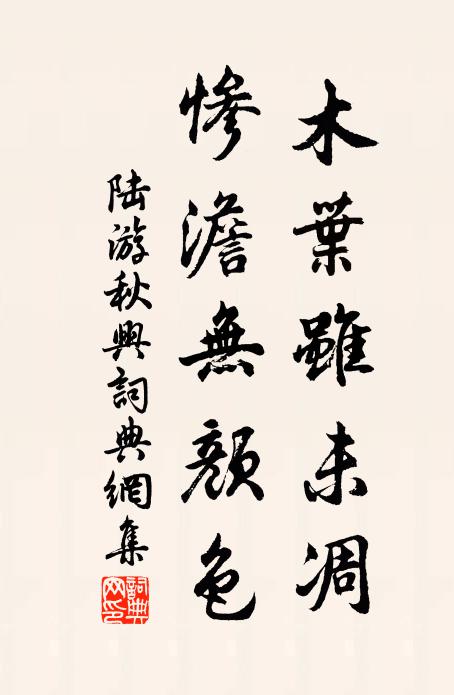 木葉雖未凋
惨澹無顏色
陆游秋興詞典網集
詞典
网印